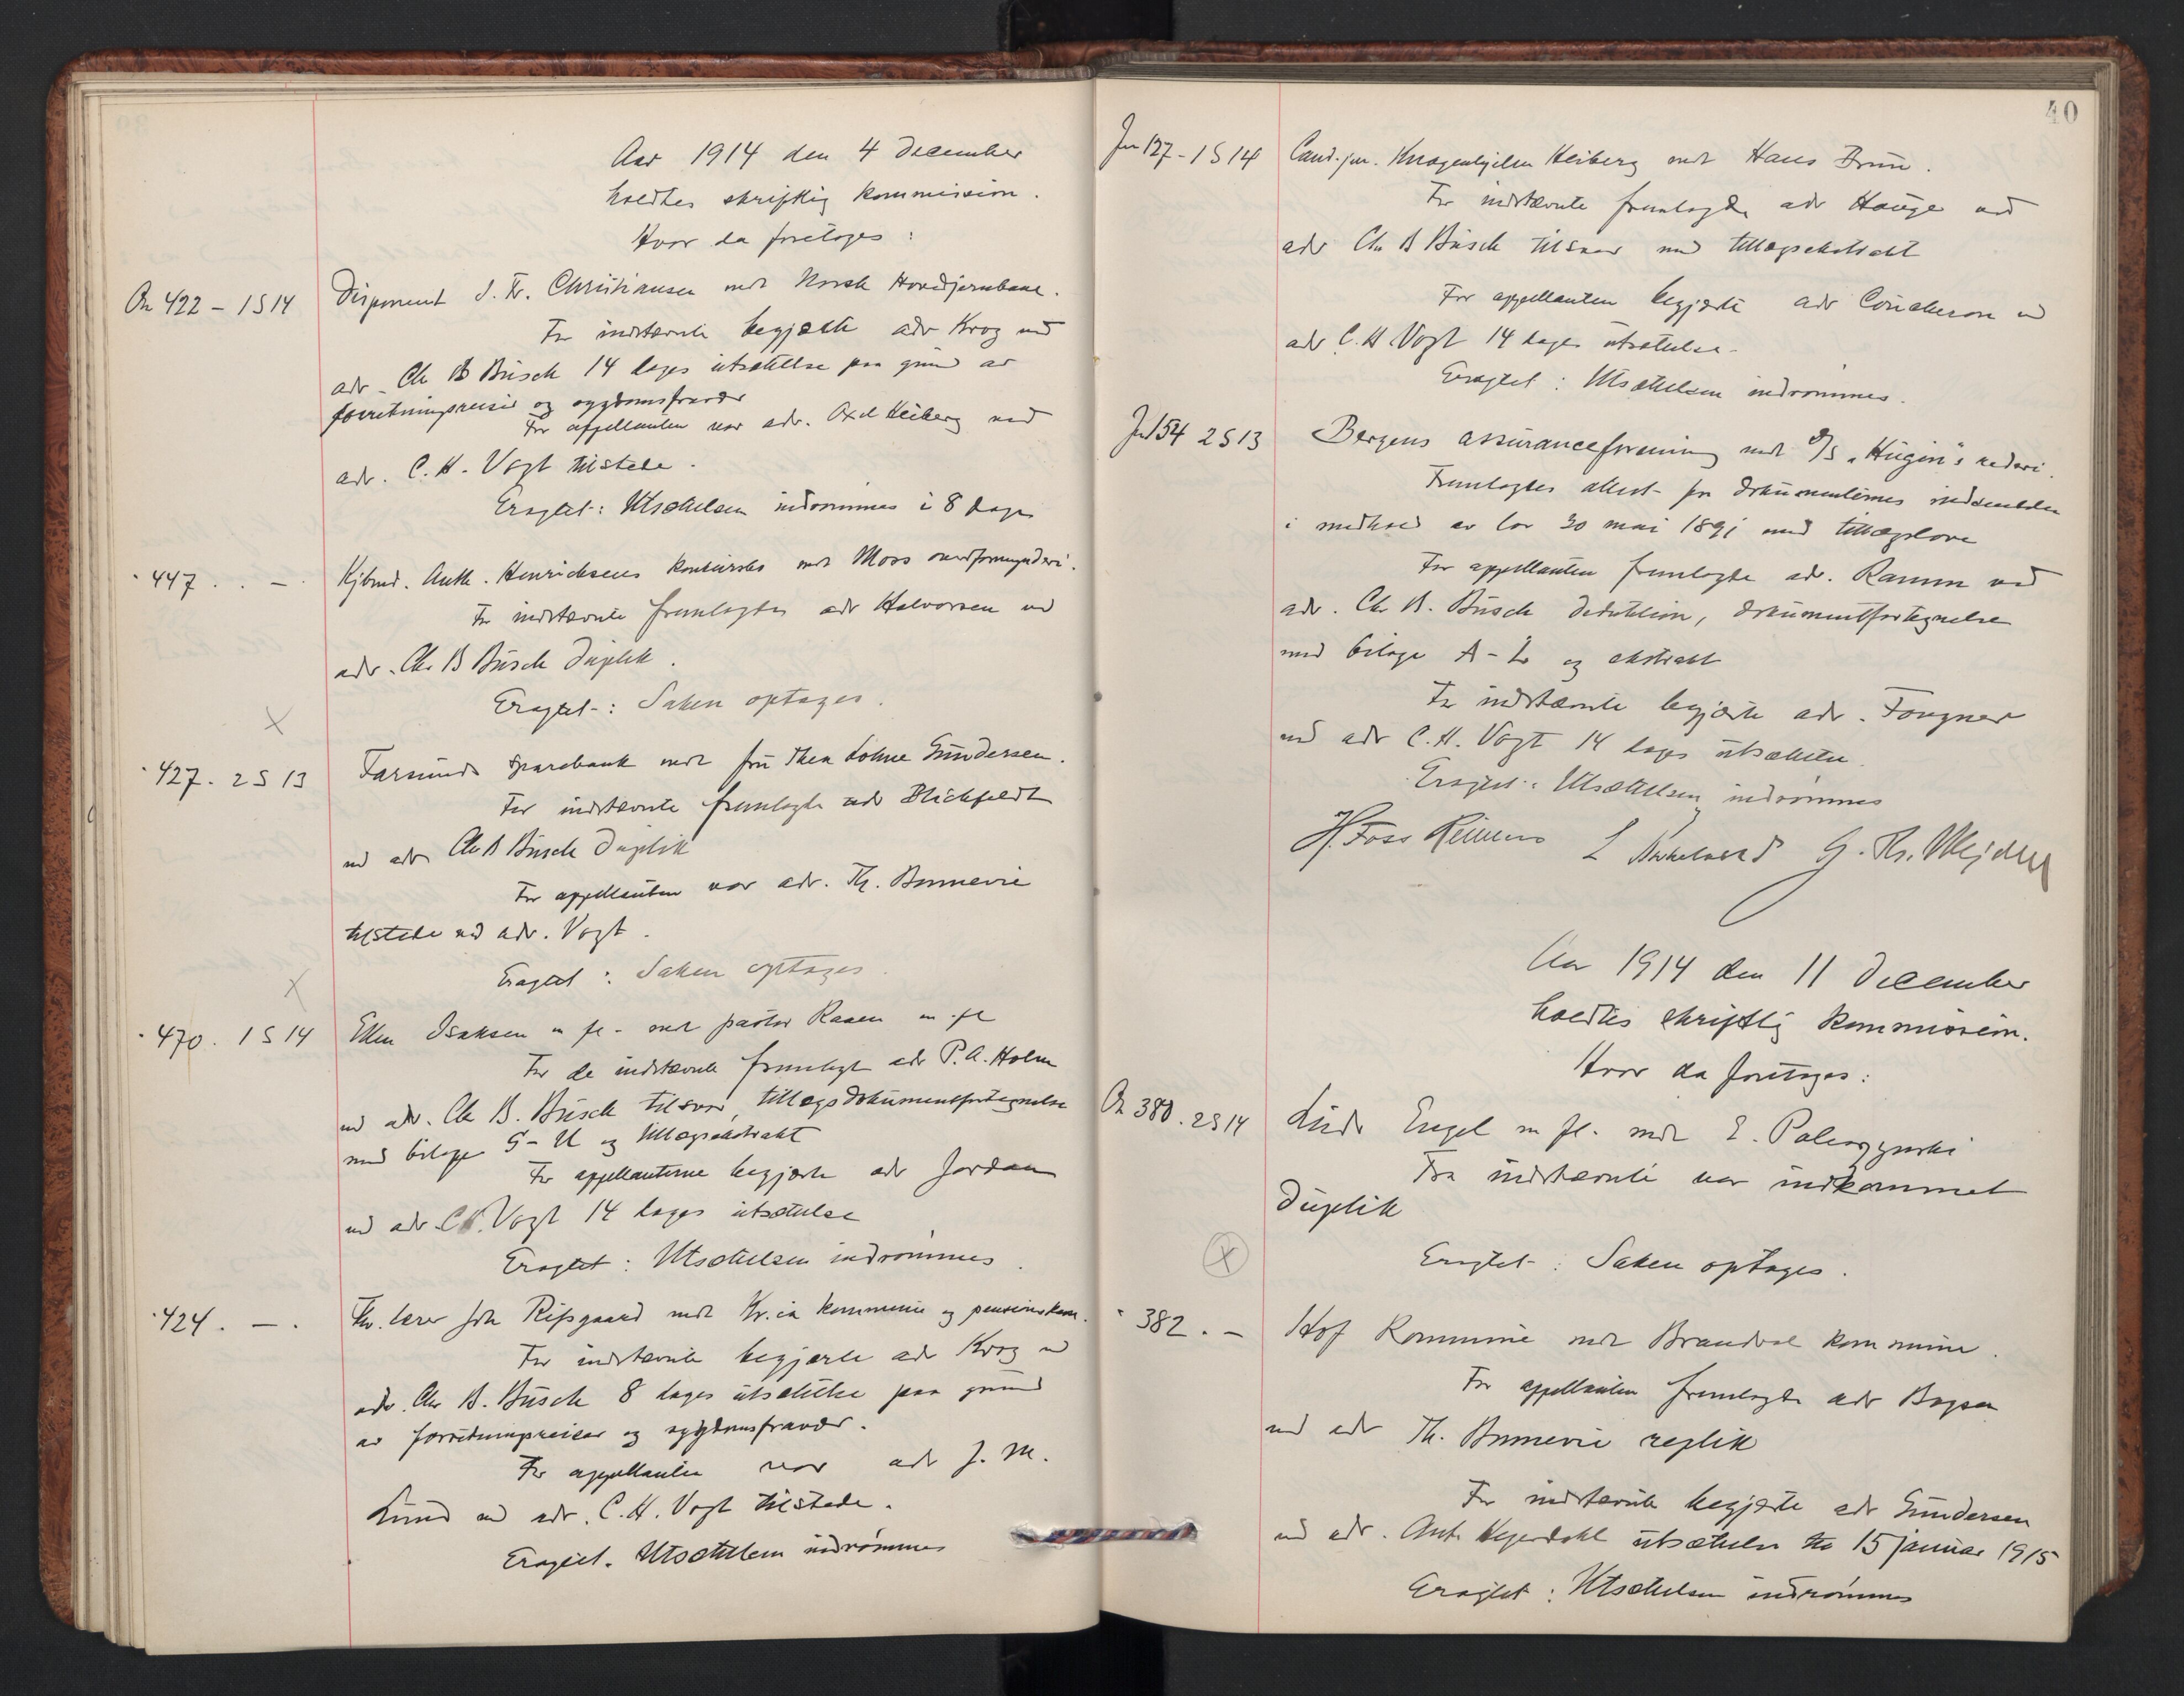 Aar 1914 den 4 december
holdtes skriftlig kommission.
Hvor da foretoges:
An 422 - 1 S 14 Disponent J. Fr. Christiansen mot Norsk Hovedjernbane.
For indstævnte begjærte adv Krog ved
adv. Chr B Busch 14 dages utsættelse paa grund av
forretningsreiser og sygdomsfravær
For appellanten var adv. Axel Heiberg ved
adv. C. H. Vogt tilstede.
Eragtet: Utsættelsen indrømmes i 8 dage
" 447 . . - . Kjbmd. Anth. Henrichsens konkursbo mot Moss overformynderi.
For indstævnte fremlagdes adv Halvorsen ved
adv. Chr B Busch duplik.
Eragtet: Saken optages.
X
" 427. 2 S 13 Farsunds sparebank mot fru Thea Lohne Gundersen.
For indstævnte fremlagte adv Blichfeldt
ved adv Chr B Busch duplik
For appellanten var adv. Th. Bonnevie
tilstede ved adv. Vogt.
Eragtet: Saken optages.
X
" 470. 1 S 14 Ellen Isaksen m fl. mot pastor Raaen m. fl
For de indstævnte fremlagt adv P. A. Holm
ved adv. Chr B. Busch tilsvar, tillægsdokumentfortegnelse
med bilage G - U og tillægsekstrakt
For appellanterne begjærte adv Jordan
ved adv C H. Vogt 14 dages utsættelse
Eragtet: Utsættelsen indrømmes.
" 424. - . Fhv. lærer Joh Risgaard mot Kr.ia kommune og pensionskasse.
For indstævnte begjærte adv Krog ved
adv. Chr B. Busch 8 dages utsættelse paa grund
av forretningsreiser og sygdomsfravær.
For appellanten var adv J. M.
Lund ved adv. C. H. Vogt tilstede.
Eragtet. Utsættelsen indrømmes
40
Jn 127 - 1 S 14 Cand. jur. Knagenhjelm Heiberg mot Hans Bruu.
For indstævnte fremlagde adv Hauge ved
adv Chr B Busch tilsvar med tillægsekstrakt
For appellanten begjærte adv Coucheron ved
adv C. H Vogt 14 dages utsættelse.
Eragtet: Utsættelsen indrømmes.
Jn 154 2 S 13 Bergens assuranceforening mot D/S "Hugin"s rederi.
Fremlagdes attest for dokumenternes indsendelse
i medhold av lov 30 mai 1891 med tillægslove
For appellanten fremlagde adv. Ramm ved
adv. Chr B. Busch deduktion, dokumentfortegnelse
med bilage A - L og ekstrakt
For indstævnte begjærte adv. Fougner
ved adv C. H. Vogt 14 dages utsættelse.
Eragtet: Utsættelsen indrømmes
H. Foss Reimers
Aar 1914 den 11 december
holdtes skriftlig kommission.
Hvor da foretoges:
An 380. 2 S 14 Engel m fl. mot E.
For indstævnte var indkommet
duplik
Eragtet: Saken optages.
X
" 382. - Hof kommune mot Brandval kommune.
For appellanten fremlagde adv
ved adv Th. Bonnevie replik
For indstævnte begjærte adv Gundersen
ved adv. Anth Hegerdahl utsættelse til 15 januar 1915
Eragtet: Utsættelsen indrømmes